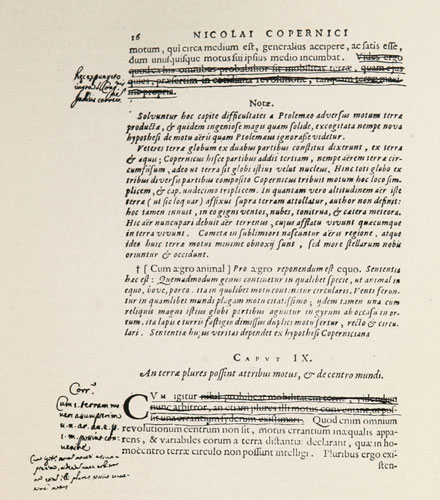 16 NICOLAI COPERNICI
motum, qui circa medium est, generalius accipere, ac satis esse,
dum unusquisque motus sui ipsius medio incumbat. Vides ergo
quod ex his omnibus probabilior sit mobilitas terræ, quam ejus
quies, præsertim in cotidiana revolutione, tanquam terræ maxi-
me propria.
Notæ.
Solvuntur hoc capite difficultates a Ptolemæo adversus motum terræ
productæ, & quidem ingeniose magis quam solide, excogitata nempe nova
hypothesi de motu aëris quam Ptolemæus ignorasse videtur.
Veteres terræ globum ex duabus partibus constitui dixerunt, ex terra
& aqua; Copernicus hisce partibus addit tertiam, nempe aërem terræ cir-
cumfusum, adeo ut terra sit globi istius velut nucleus. Hinc toti globo ex
tribus diversis partibus composito Copernicus tribuit motum hoc loco sim-
plicem, & cap. undecimo triplicem. In quantam vero altitudinem aër iste
terræ (ut sic loquar) affixus supra terram attollatur, author non definit:
hoc tamen innuit, in eo gigni ventos, nubes, tonitrua, & cætera meteora.
Hic aër nuncupari debuit aër terrenus, cujus afflatu vivunt quæcumque
in terra vivunt. Cometæ in sublimiore nascuntur aëris regione. atque
ideo huic terræ motui minime obnoxii sunt, sed more stellarum nobis
oriuntur & occidunt.
† [Cum ægro animal] Pro ægro reponendum est equo. Sententia
hæc est: Quemadmodum genus continetur in qualibet specie, ut animal in
equo, bove, porco. ita in quolibet motu continetur circularis. Venti ferun-
tur in quamlibet mundi plagam motu citatissimo; iidem tamen una cum
reliquis magni istius globi partibus aguntur in gyrum ab occasu in or-
tum. ita lapis e turris fastigio dimissus duplici motu fertur, recto & circu-
lari. Sententiæ hujus veritas dependet ex hypothesi Copernicana
CAPUT IX.
An terræ plures possint attribui motus, & de centro mundi.
Corr.
CUM igitur nihil prohibeat mobilitatem terræ, videndum
nunc arbitror, an etiam plures illi motus conveniant, ut pos-
sit una errantium syderum existimari. Quod enim omnium
revolutionum centrum non sit, motus errantium inæqualis appa-
rens, & variabiles eorum a terra distantiæ declarant, quæ in ho-
mocentro terræ circulo non possunt intelligi. Pluribus ergo exi-
sten-